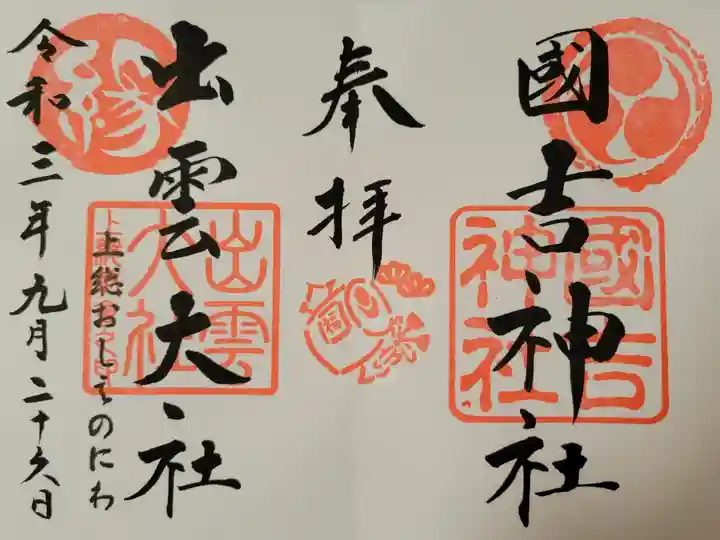 國吉神社
國吉神社
奉拝
出雲大社
出雲大社
上総おしえのにわ
令和三年九月二十六日